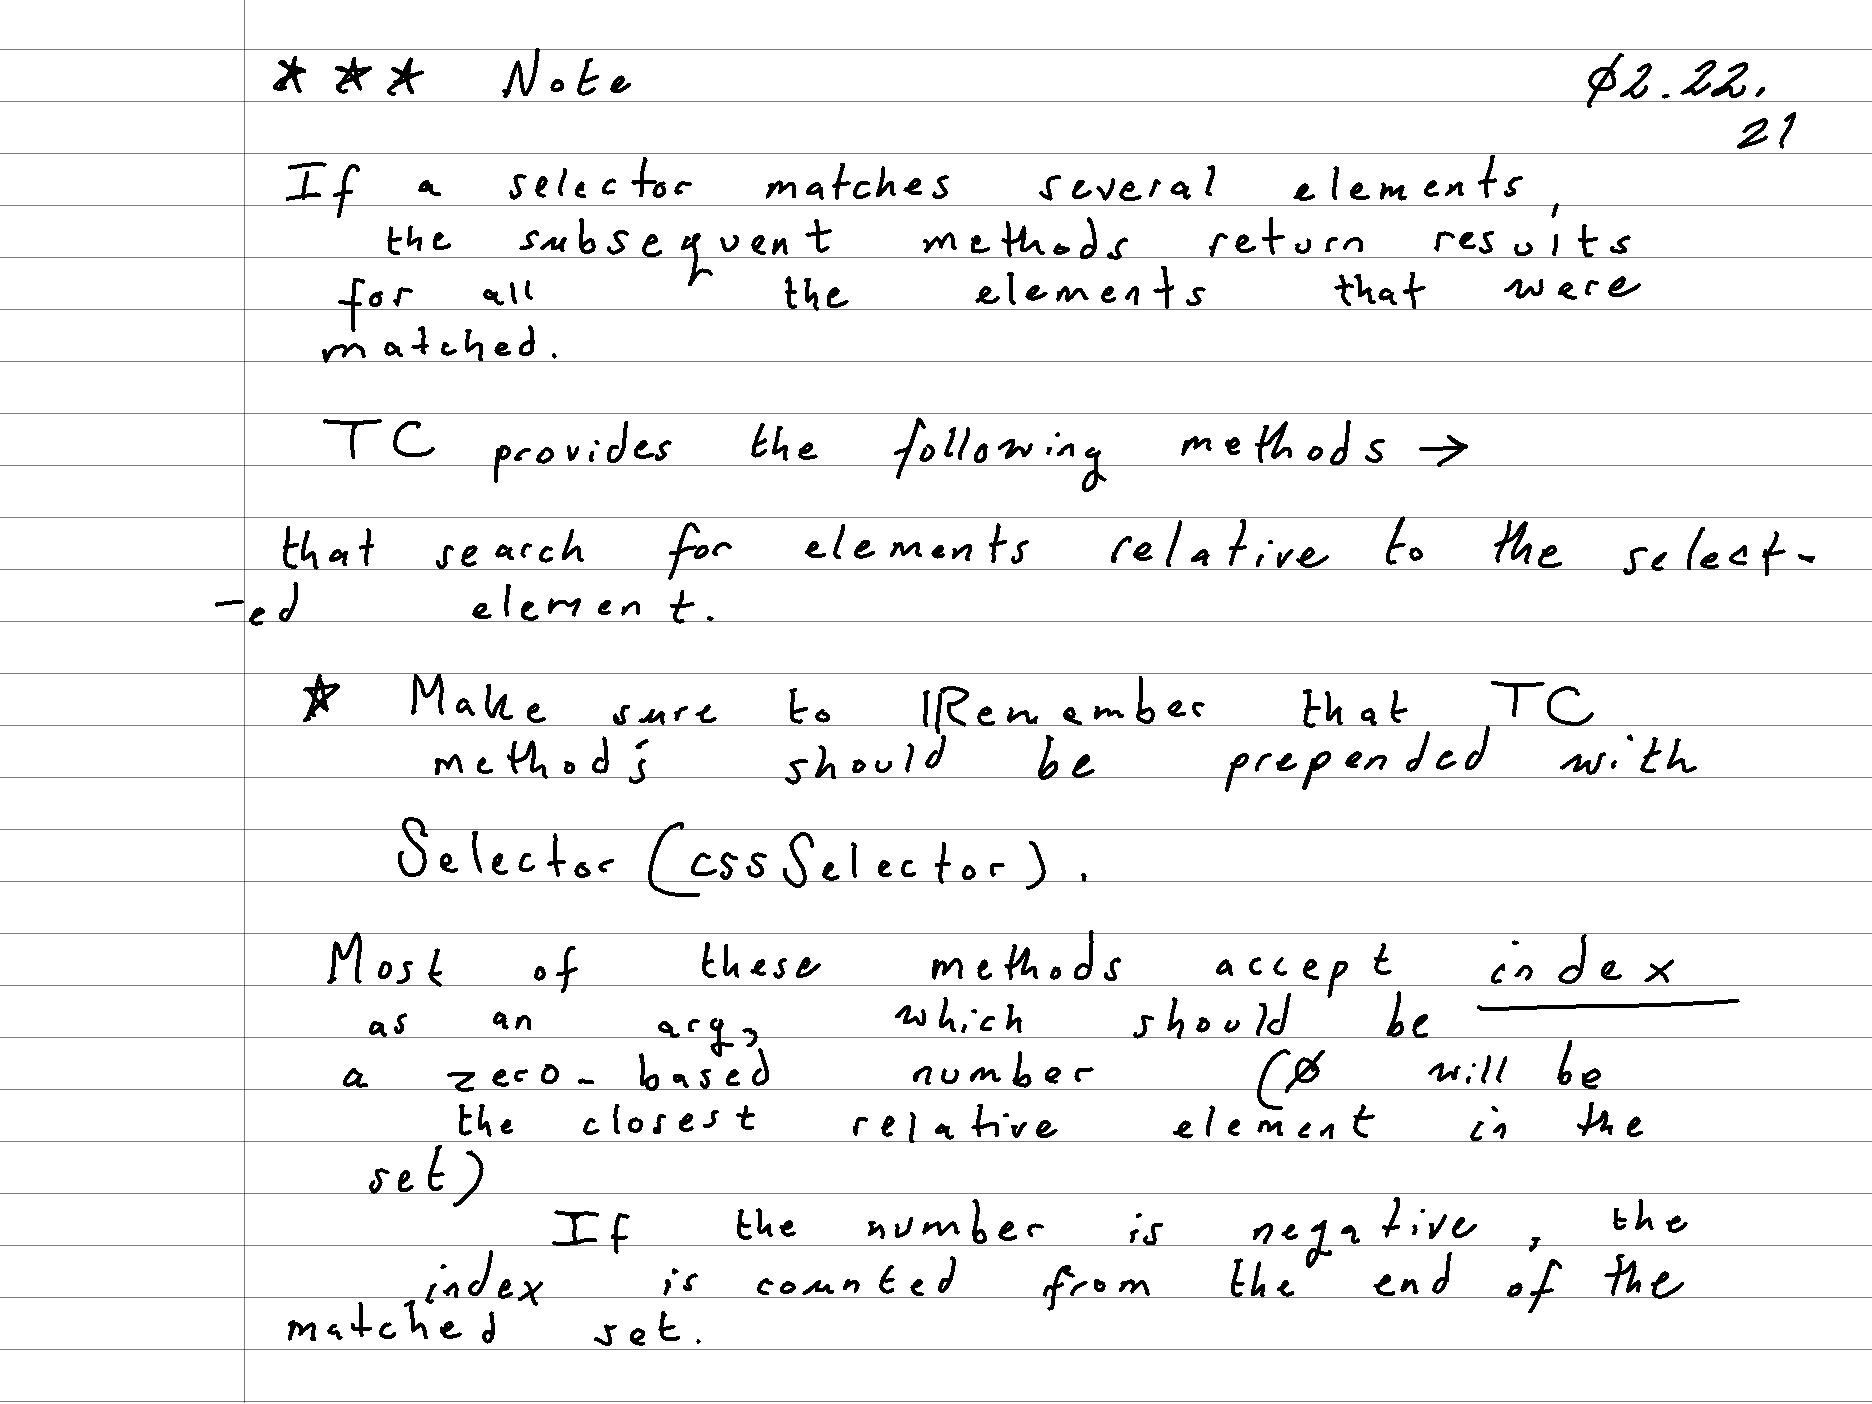 *** Note 02.22.
21
If a selector matches several elements,
the subsequent methods return results
for all the elements that were
matched.
TC provides the following methods →
that search for elements relative to the select-
-ed element.
* Make sure to Remember that TC
methods should be prepended with
Selector (cssSelector).
Most of these methods accept index
as an arg, which should be
a zero-based number (0 will be
the closest relative element in the
set)
If the number is negative, the
index is counted from the end of the
matched set.